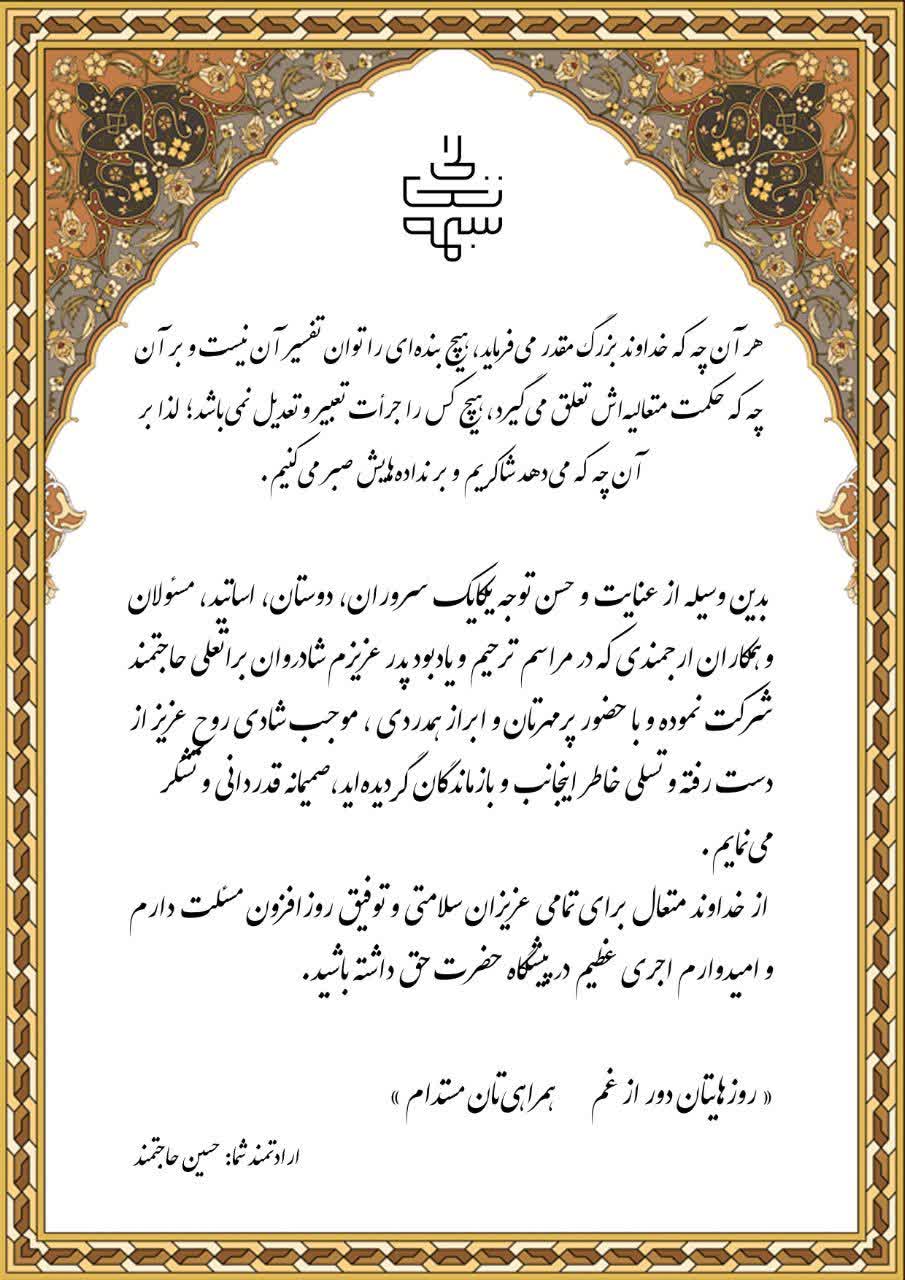 بسمه تعالی
هر آن چه که خداوند بزرگ مقدر می‌فرماید، هیچ بنده‌ای را توان تفسیر آن نیست و بر آن
چه که حکمت متعالیه‌اش تعلق می‌گیرد، هیچ کس را جرأت تعبیر و تعدیل نمی‌باشد؛ لذا بر
آن چه که می‌دهد شاکریم و بر نداده‌هایش صبر می‌کنیم .
بدین وسیله از عنایت و حسن توجه یکایک سروران، دوستان، اساتید، مسئولان
و همکاران ارجمندی که در مراسم ترحیم و یادبود پدر عزیزم شادروان براتعلی حاجتمند
شرکت نموده و با حضور پرمهرتان و ابراز همدردی ، موجب شادی روح عزیز از
دست رفته و تسلی خاطر اینجانب و بازماندگان گردیده‌اید، صمیمانه قدردانی و تشکر
می‌نمایم .
از خداوند متعال برای تمامی عزیزان سلامتی و توفیق روزافزون مسئلت دارم
و امیدوارم اجری عظیم در پیشگاه حضرت حق داشته باشید.
« روزهایتان دور از غم     همراهی‌تان مستدام »
ارادتمند شما: حسین حاجتمند